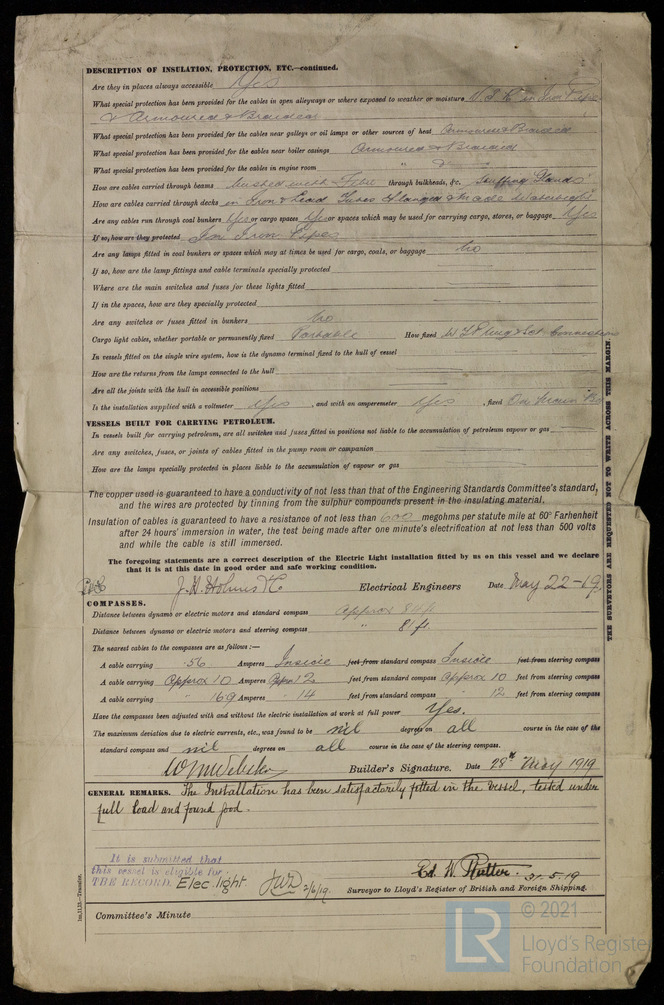 DESCRIPTION OF INSULATION, PROTECTION, ETC.—continued.
Are they in places always accessible Yes
What special protection has been provided for the cables in open alleyways or where exposed to weather or moisture V.I.R. in Iron Pipe
& Armoured & Braided
What special protection has been provided for the cables near galleys or oil lamps or other sources of heat Armoured & Braided
What special protection has been provided for the cables near boiler casings Armoured & Braided
What special protection has been provided for the cables in engine room " D°
How are cables carried through beams bushed with Fibre through bulkheads, &c. Stuffing Glands
How are cables carried through decks in Iron & Lead Tubes Flanged & made Watertight
Are any cables run through coal bunkers Yes or cargo spaces Yes or spaces which may be used for carrying cargo, stores, or baggage Yes
If so, how are they protected In Iron Pipes
Are any lamps fitted in coal bunkers or spaces which may at times be used for cargo, coals, or baggage No
If so, how are the lamp fittings and cable terminals specially protected
Where are the main switches and fuses for these lights fitted
If in the spaces, how are they specially protected
Are any switches or fuses fitted in bunkers No
Cargo light cables, whether portable or permanently fixed Portable How fixed W.T. Plug & Soc. Connections
In vessels fitted on the single wire system, how is the dynamo terminal fixed to the hull of vessel
How are the returns from the lamps connected to the hull
Are all the joints with the hull in accessible positions
Is the installation supplied with a voltmeter Yes, and with an amperemeter Yes, fixed On Main Bd
VESSELS BUILT FOR CARRYING PETROLEUM.
In vessels built for carrying petroleum, are all switches and fuses fitted in positions not liable to the accumulation of petroleum vapour or gas
Are any switches, fuses, or joints of cables fitted in the pump room or companion
How are the lamps specially protected in places liable to the accumulation of vapour or gas
The copper used is guaranteed to have a conductivity of not less than that of the Engineering Standards Committee's standard,
and the wires are protected by tinning from the sulphur compounds present in the insulating material.
Insulation of cables is guaranteed to have a resistance of not less than 600 megohms per statute mile at 60° Farhenheit
after 24 hours' immersion in water, the test being made after one minute's electrification at not less than 500 volts
and while the cable is still immersed.
The foregoing statements are a correct description of the Electric Light installation fitted by us on this vessel and we declare
that it is at this date in good order and safe working condition.
J. H. Holmes & Co Electrical Engineers Date May 22-19.
COMPASSES.
Distance between dynamo or electric motors and standard compass Approx 84 ft
Distance between dynamo or electric motors and steering compass " 81 ft
The nearest cables to the compasses are as follows:—
A cable carrying ·56 Amperes Inside feet from standard compass Inside feet from steering compass
A cable carrying Approx 10 Amperes Appx 12 feet from standard compass Approx 10 feet from steering compass
A cable carrying " 169 Amperes " 14 feet from standard compass " 12 feet from steering compass
Have the compasses been adjusted with and without the electric installation at work at full power Yes.
The maximum deviation due to electric currents, etc., was found to be nil degrees on all course in the case of the
standard compass and nil degrees on all course in the case of the steering compass.
Builder's Signature. Date 28th May 1919
GENERAL REMARKS. The Installation has been satisfactorily fitted in the vessel, tested under
full load and found good.
It is submitted that
this vessel is eligible for
THE RECORD. Elec. light 2/6/19.
Ed. W. Rutter. 31.5.19
Surveyor to Lloyd's Register of British and Foreign Shipping.
Committee's Minute
THE SURVEYORS ARE REQUESTED NOT TO WRITE ACROSS THIS MARGIN.
LR
© 2021
Lloyd's Register
Foundation